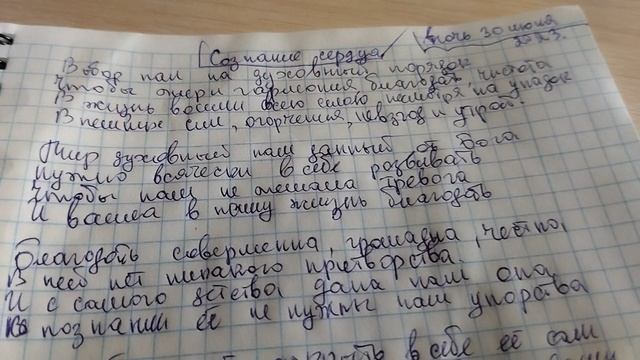 Сознание сердца
ночь 30 июня
2023.
Выбор пал на духовный порядок
Чтобы энергии гармония благодать чистота
В жизнь вошли всего несмотря на упадок
В сил, огорчения, невзгод и утрат.
Мир духовный нам данный от Бога
Нужно всячески в себе развивать
Чтобы нам не мешала тревога
И вошла в нашу жизнь благодать
Благодать совершенна, громадна, честна,
В ней нет никакого притворства.
И с самого детства дана нам она
В познании её не нужны нам упорства
в себе её сами